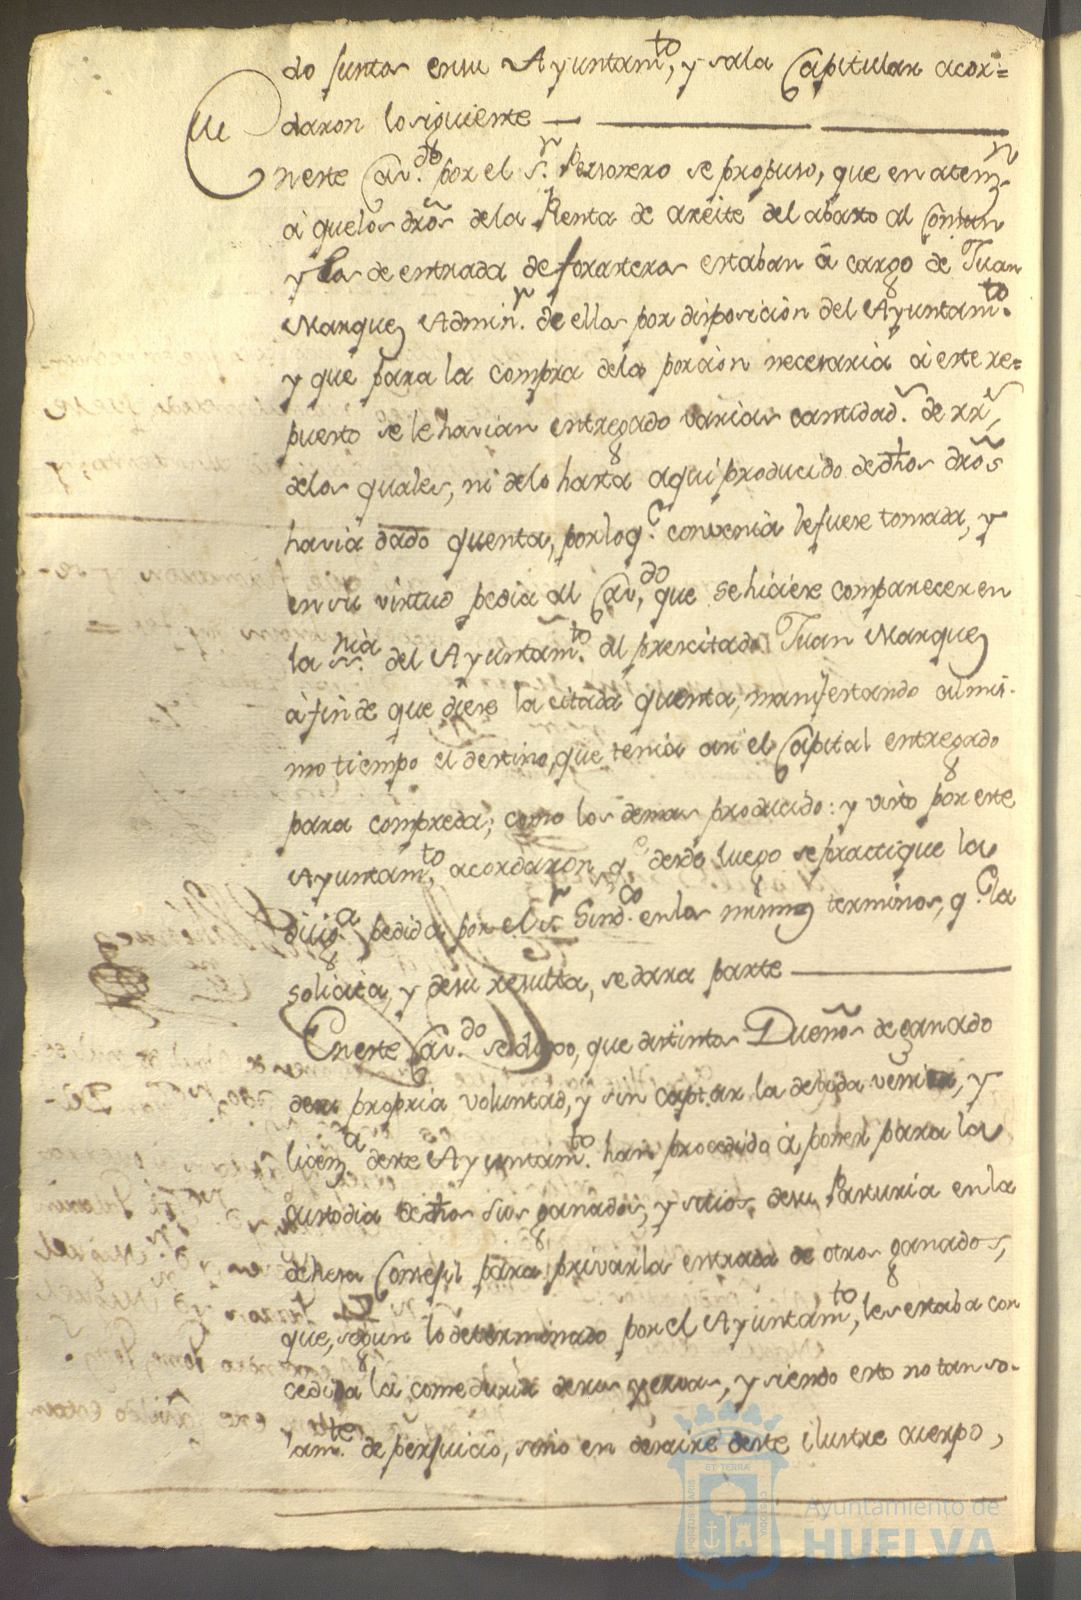 do juntos en su Ayuntam.to, y sala Capitular acor=
daron lo siguiente
En este Cav.do por el S.r Personero se propuso, que en atenz.n
à que los dros de la Renta de azeite del abasto al Comun
y los de entrada de forasteros estaban â cargo de Juan
Marquez Admin.r de ellos por disposicion del Ayuntam.to
y que para la compra dela porcion necesaria à este re=
puesto se le havian entregado varias cantidad.s de rr.s,
delos quales, ni delo hasta aqui producido de dhos dros
havia dado quenta, por lo q.e convenia le fuese tomada, y
en su virtud pedia al Cav.do que se hiciese comparecer en
la s.nia del Ayuntam.to al prescitado Juan Marquez
à fin de que diese la citada quenta, manifestando al mis-
mo tiempo el destino, que tenia asi el Capital entregado
para compreda; como los demas producido: y visto por este
Ayuntam.to acordaron q.e desde luego se practique la
dilig.a pedida por el S.r Sind.co en los mismos terminos, q.e la
solicita, y de su resulta, se dara parte
En este Cav.do se dixo, que distintos Dueños de ganado
de su propria voluntad, y sin captar la debida venia, y
licenz.a deste Ayuntam.to han procedido à poner para la
custodia de dhos sus ganados, y sitios de su Pasturia en la
dehesa Consegil para privar la entrada de otros ganados,
que, segun lo determinado por el Ayuntam.to, les estaba con
cedida la comeduria de sus yervas, y siendo esto no tan so-
lam.te de perjuicio, sino en desaire deste ilustre cuerpo,
Ayuntamiento de
HUELVA